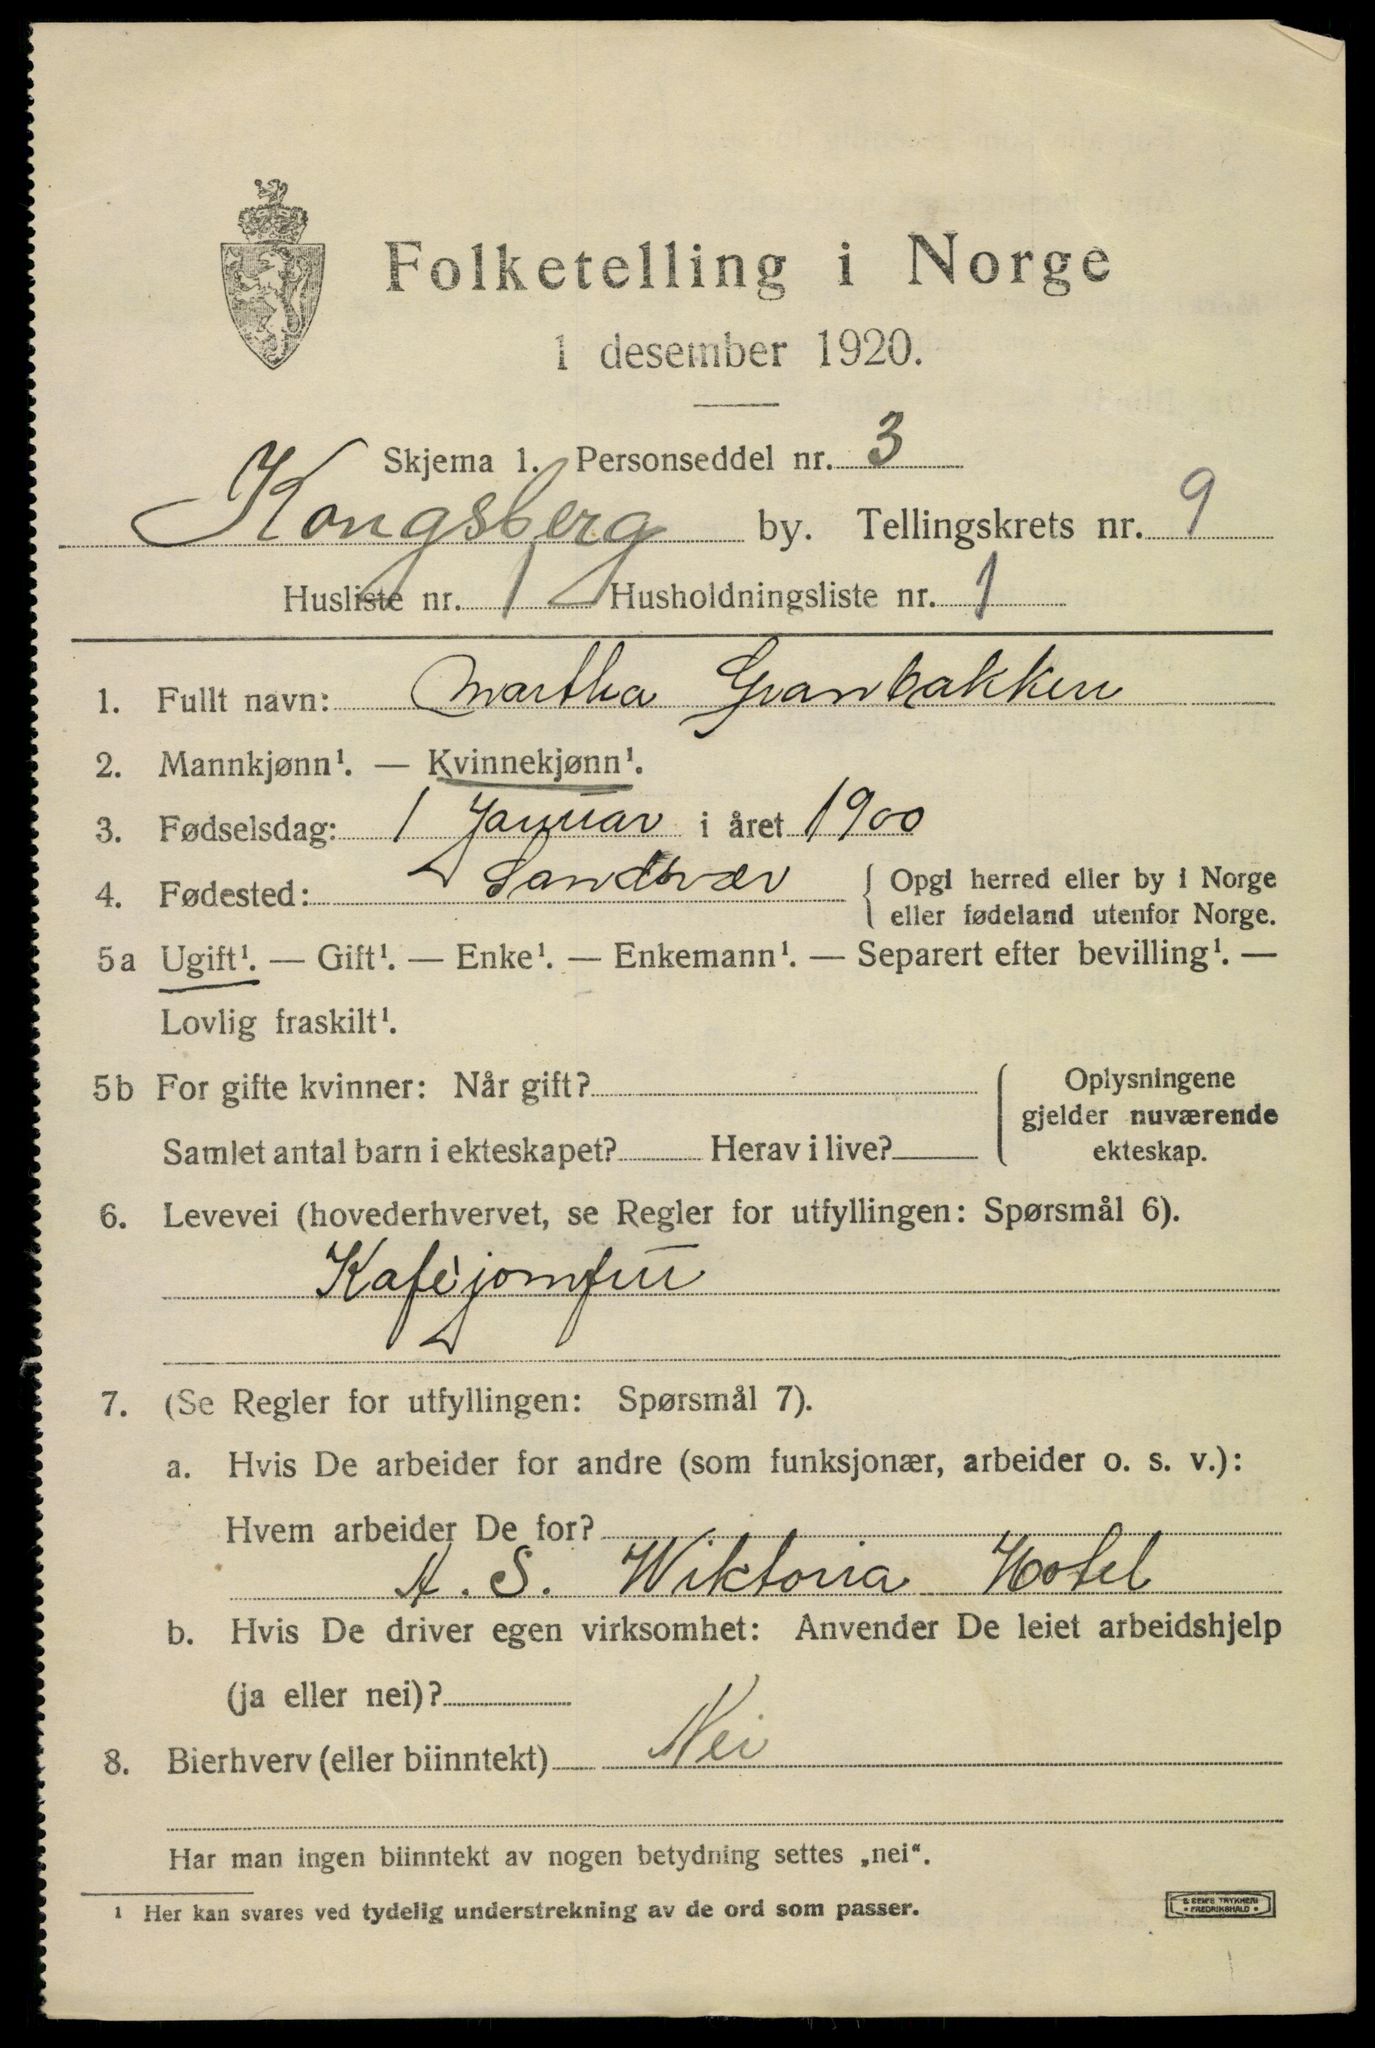 Folketelling i Norge
1 desember 1920.
Skjema 1. Personseddel nr. 3
Kongsberg by. Tellingskrets nr. 9
Husliste nr. 1 Husholdningsliste nr. 1
1. Fullt navn: Martha Granbakken
2. Mannkjønn¹. — Kvinnekjønn¹.
3. Fødselsdag: 1 Januar i året 1900
4. Fødested: Sandsvær { Opgi herred eller by i Norge
eller fødeland utenfor Norge.
5a Ugift¹. — Gift¹. — Enke¹. — Enkemann¹. — Separert efter bevilling¹. —
Lovlig fraskilt¹.
5b For gifte kvinner: Når gift? { Oplysningene
gjelder nuværende
Samlet antal barn i ekteskapet? Herav i live? ekteskap.
6. Levevei (hovederhvervet, se Regler for utfyllingen: Spørsmål 6).
Kaféjomfru
7. (Se Regler for utfyllingen: Spørsmål 7).
a. Hvis De arbeider for andre (som funksjonær, arbeider o. s. v.):
Hvem arbeider De for?
A. S. Wiktoria Hotel
b. Hvis De driver egen virksomhet: Anvender De leiet arbeidshjelp
(ja eller nei)?
8. Bierhverv (eller biinntekt) Nei
Har man ingen biinntekt av nogen betydning settes „nei“.
¹ Her kan svares ved tydelig understrekning av de ord som passer.
E. SEM'S TRYKKERI
• FREDRIKSHALD •